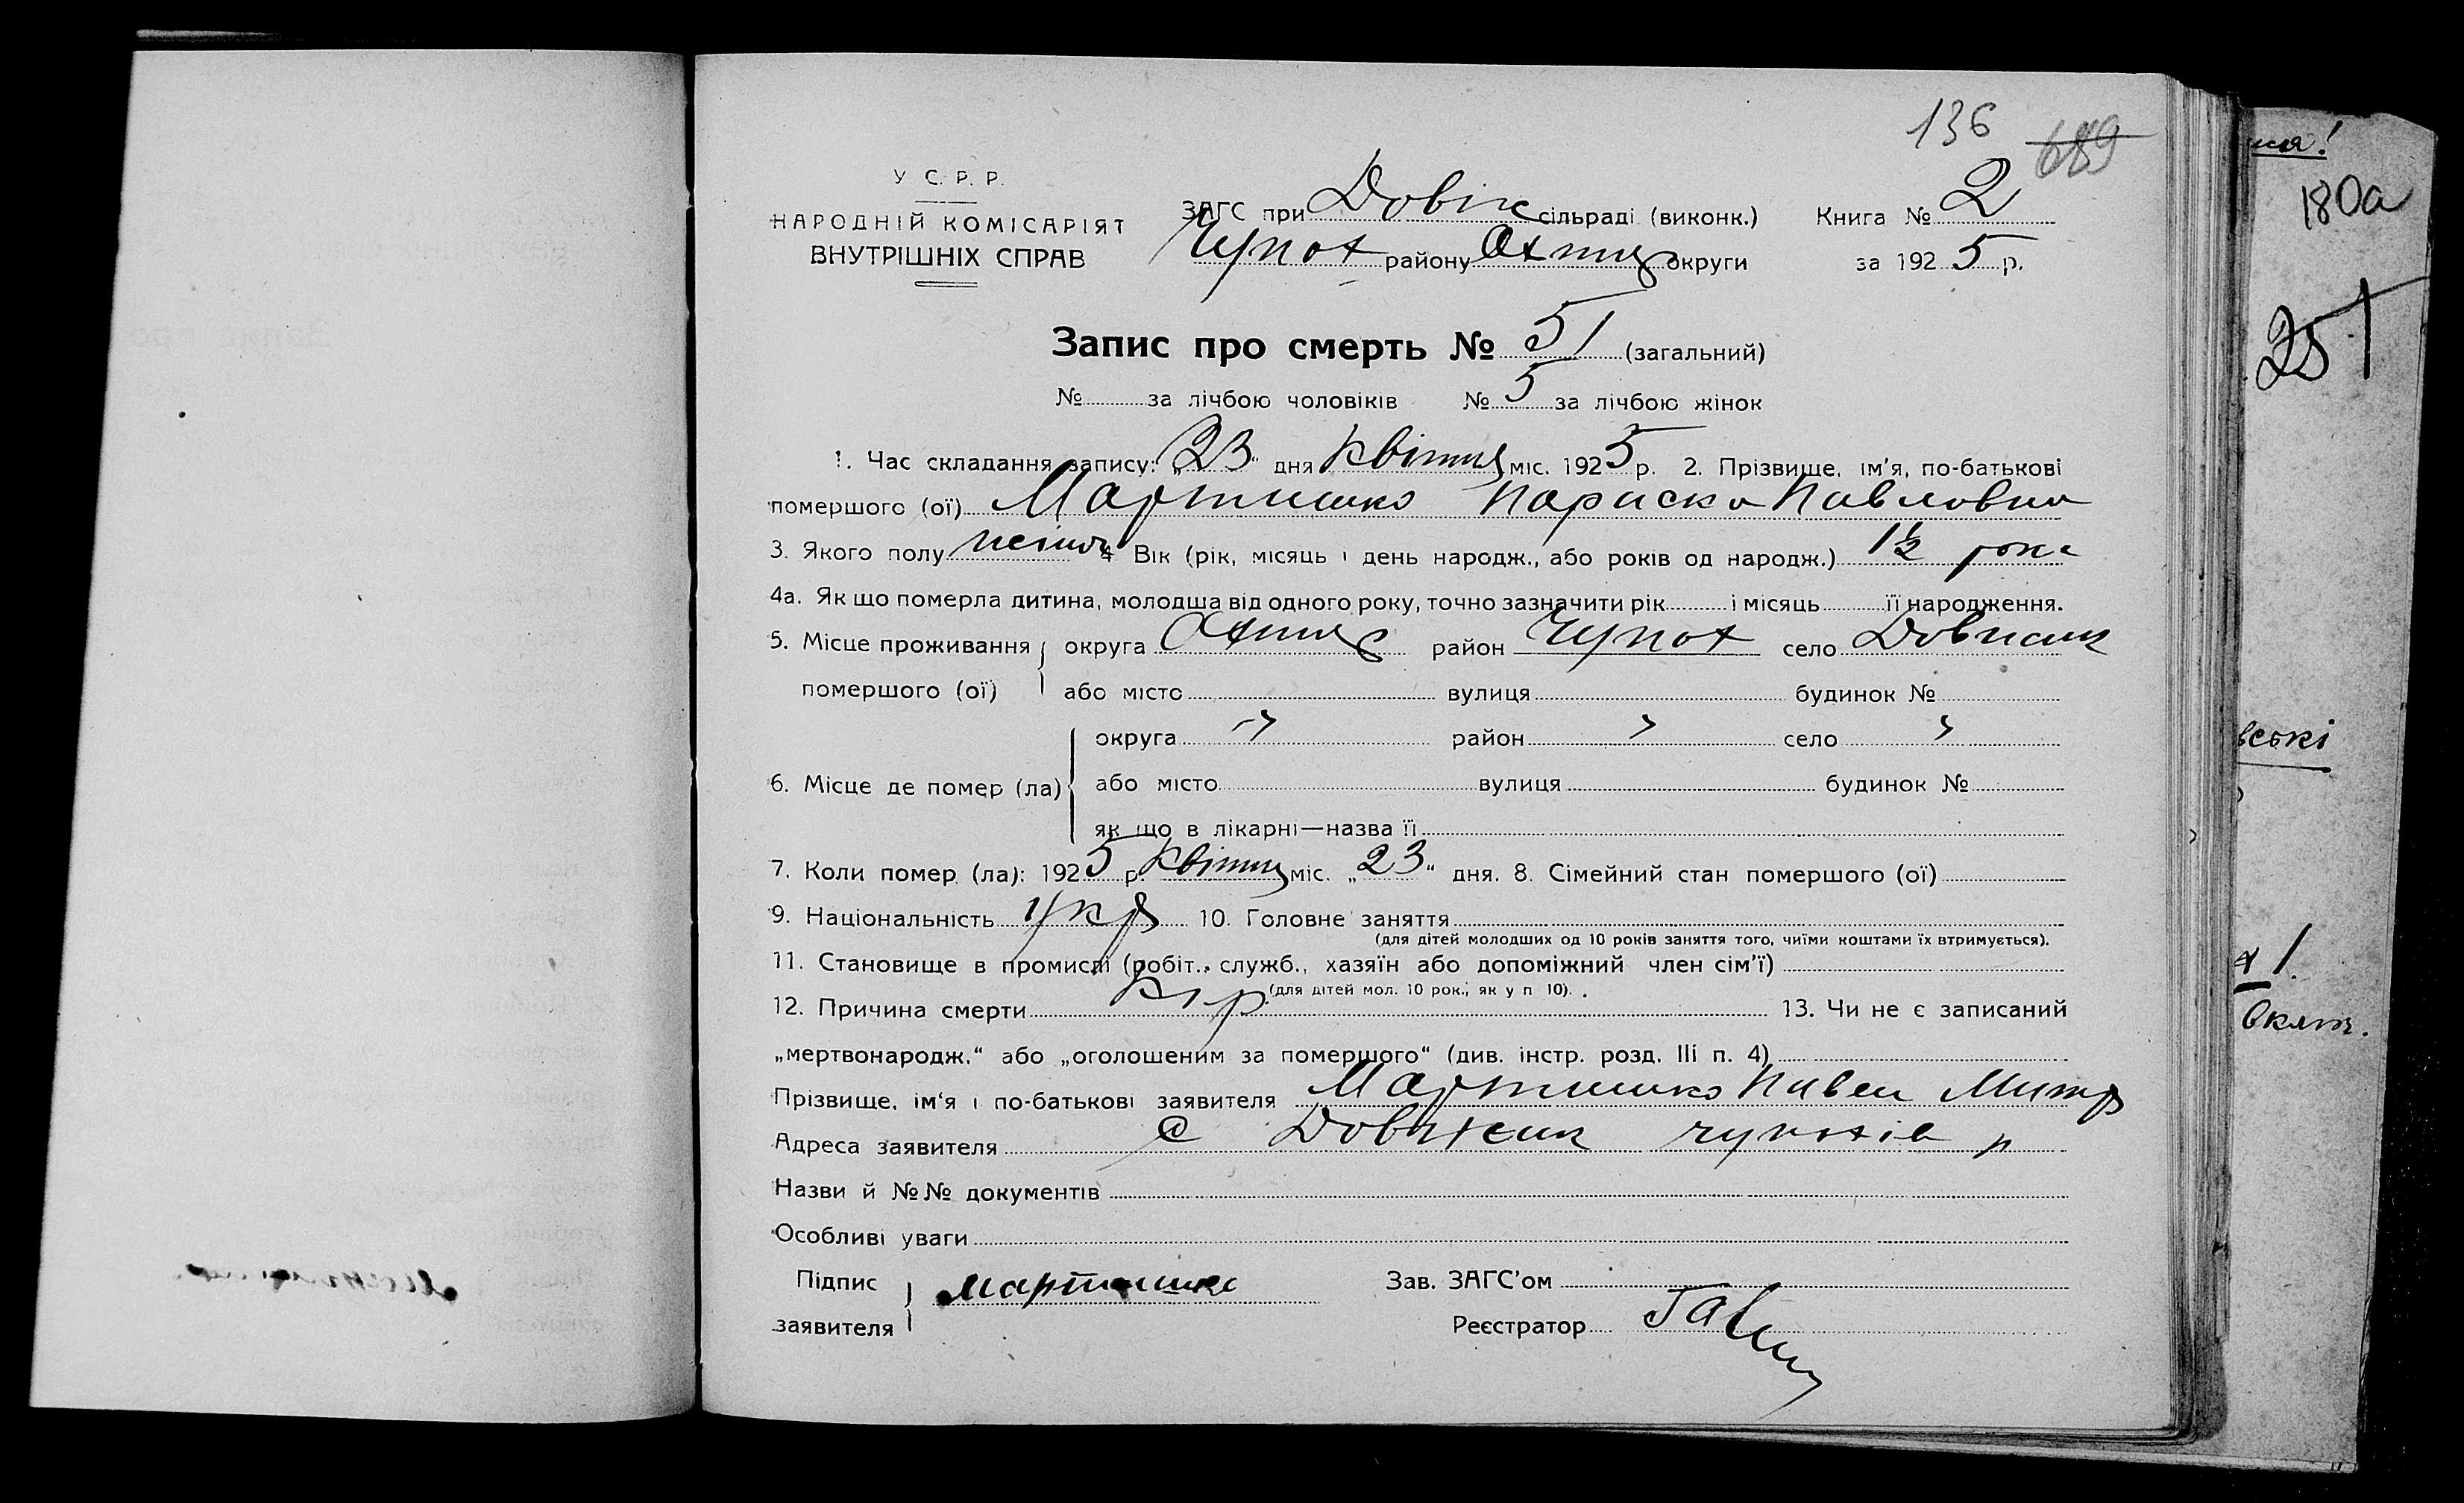 136 689
У С. Р. Р.
НАРОДНІЙ КОМІСАРІЯТ
ВНУТРІШНІХ СПРАВ
ЗАГС при Довж сільраді (виконк.) Книга № 2
Чупах району Охтир округи за 1925 р.
Запис про смерть № 51 (загальний)
№ за лічбою чоловіків № 5 за лічбою жінок
1. Час складання запису: „23“ дня квітня міс. 1925 р. 2. Прізвище, ім'я, по-батькові
помершого (ої) Мартишко Париска Павловна
3. Якого полу жіноч 4 Вік (рік, місяць і день народж., або років од народж.) 1½ року
4а. Як що померла дитина, молодша від одного року, точно зазначити рік і місяць її народження.
5. Місце проживання помершого (ої) округа Охтир район Чупах село Довжик
або місто вулиця будинок №
6. Місце де помер (ла) округа -„ район „ село „
або місто вулиця будинок №
як що в лікарні—назва її
7. Коли помер (ла): 1925 р. квітня міс. „23“ дня. 8. Сімейний стан помершого (ої)
9. Національність укр 10. Головне заняття
(для дітей молодших од 10 років заняття того, чиїми коштами їх втримується).
11. Становище в промислі (робіт., служб., хазяїн або допоміжний член сім'ї)
(для дітей мол. 10 рок., як у п 10).
12. Причина смерти кір 13. Чи не є записаний
„мертвонародж.“ або „оголошеним за помершого“ (див. інстр. розд. III п. 4)
Прізвище, ім'я і по-батькові заявителя Мартишко Павел Митр
Адреса заявителя с Довжик чупахів р
Назви й №№ документів
Особливі уваги
Підпис заявителя Мартишко Зав. ЗАГС'ом
Реєстратор
180а
251
вські
1.